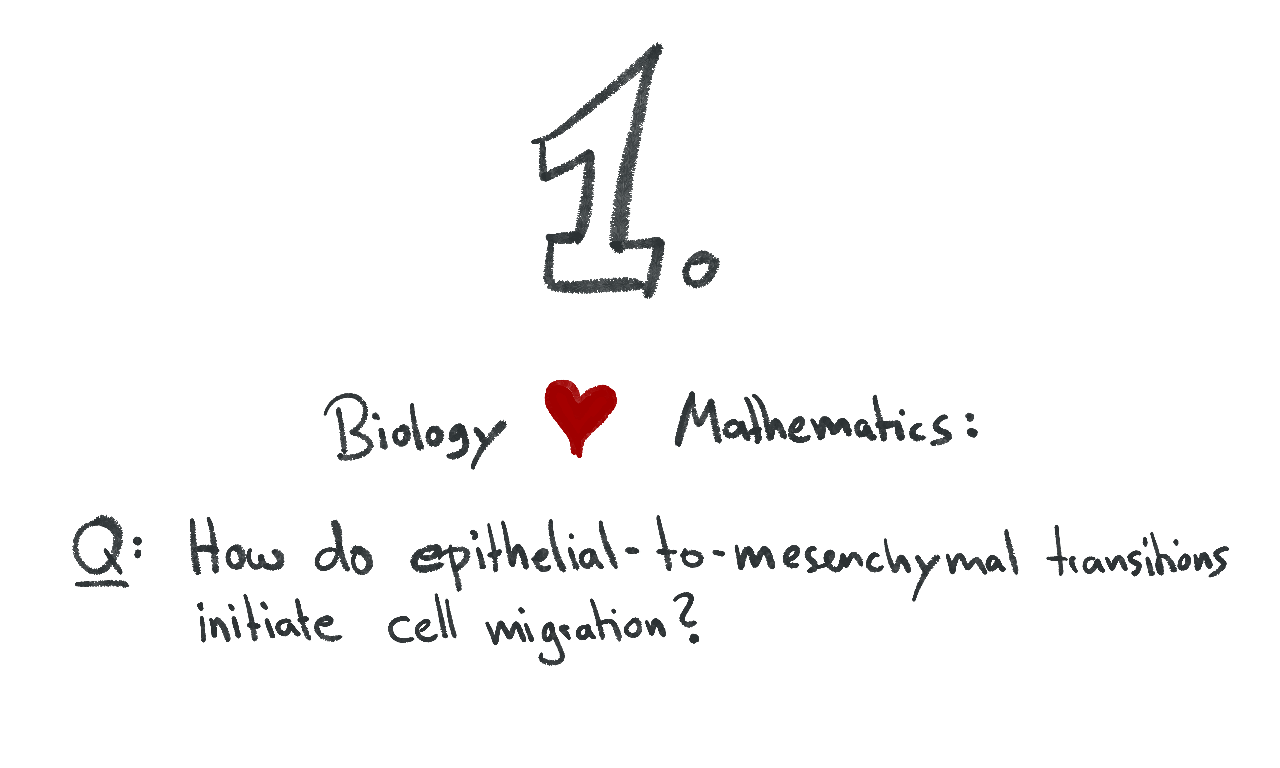 1.
Biology ♥ Mathematics:
Q: How do epithelial-to-mesenchymal transitions
initiate cell migration?